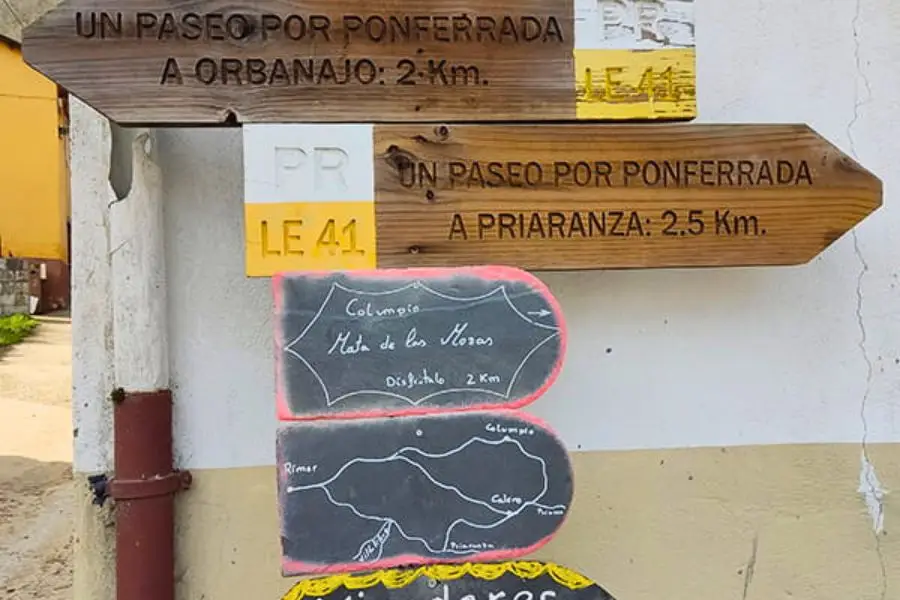 UN PASEO POR PONFERRADA
A ORBANAJO: 2 Km.
PR
LE 41
PR
LE 41
UN PASEO POR PONFERRADA
A PRIARANZA: 2.5 Km.
Columpio
Mata de las Mozas
Disfrútalo 2 Km
Columpio
Rimor
Calero
Priaranza